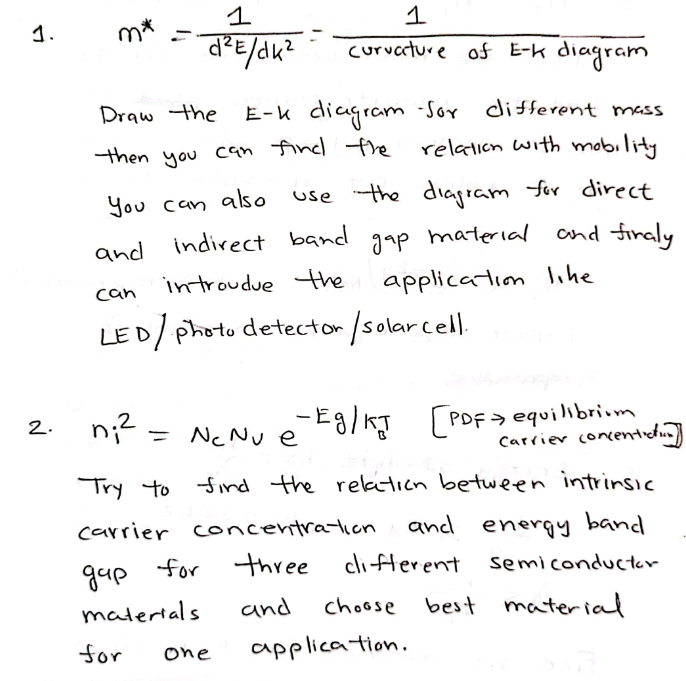 1. m* = 1/d²E/dk² = 1/curvature of E-k diagram
Draw the E-k diagram for different mass
then you can find the relation with mobility
You can also use the diagram for direct
and indirect band gap material and finaly
can introudue the application like
LED/photo detector/solar cell.
2. nᵢ² = NcNv e^-Eg/K_BT [PDF → equilibrium
carrier concentration]
Try to find the relation between intrinsic
carrier concentration and energy band
gap for three different semiconductor
materials and choose best material
for one application.